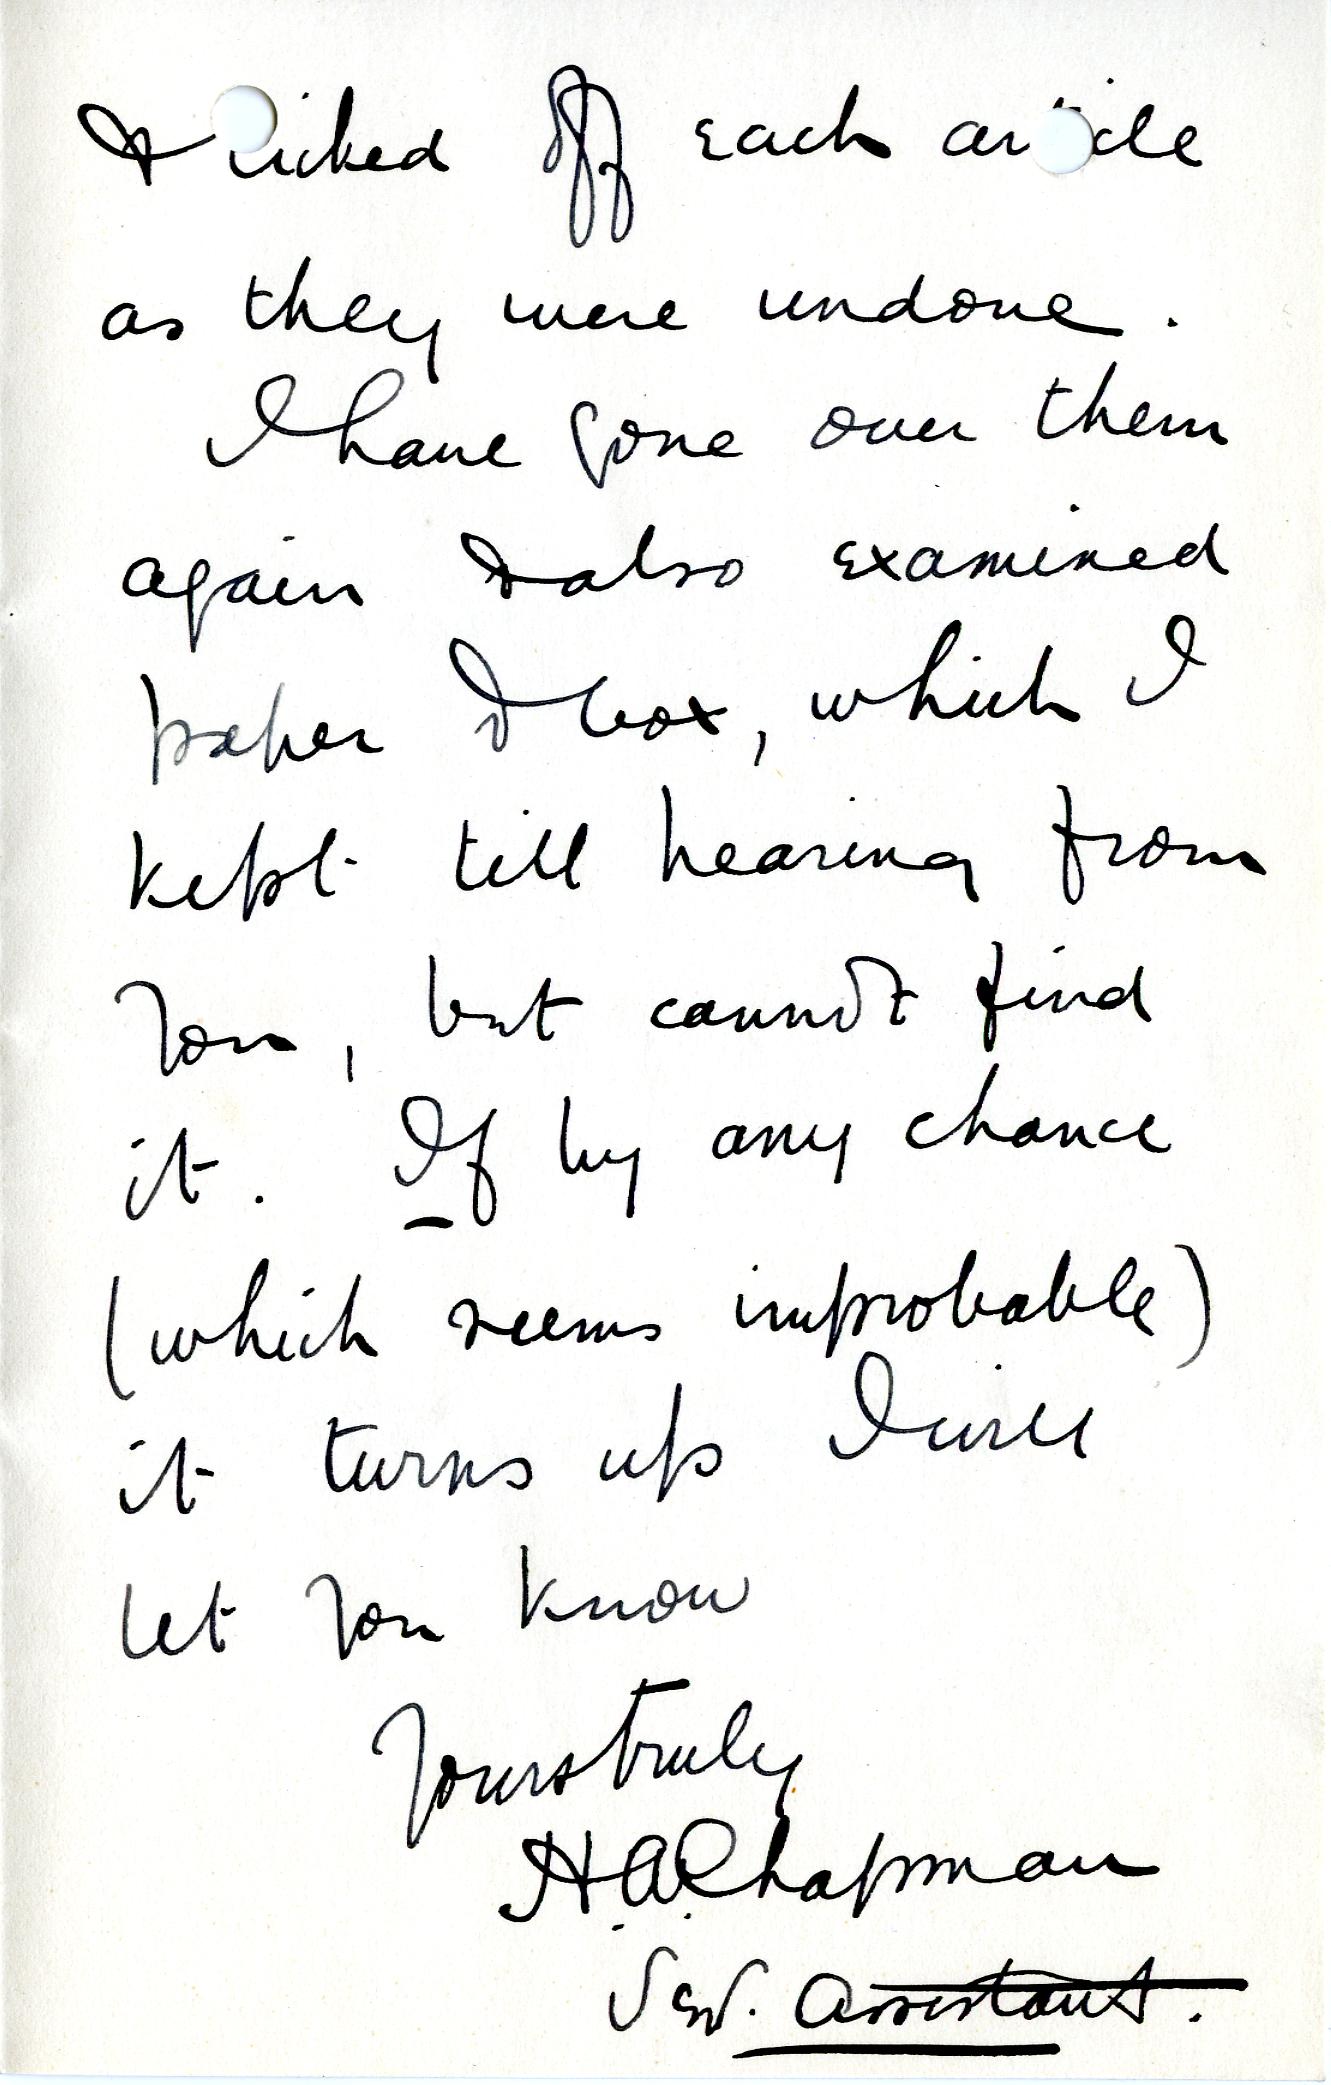 & ticked off each article
as they were undone.
I have gone over them
again & also examined
paper & box, which I
kept till hearing from
you, but cannot find
it. If by any chance
(which seems improbable)
it turns up I will
let you know
Yours truly
H. A. Chapman
Assistant.